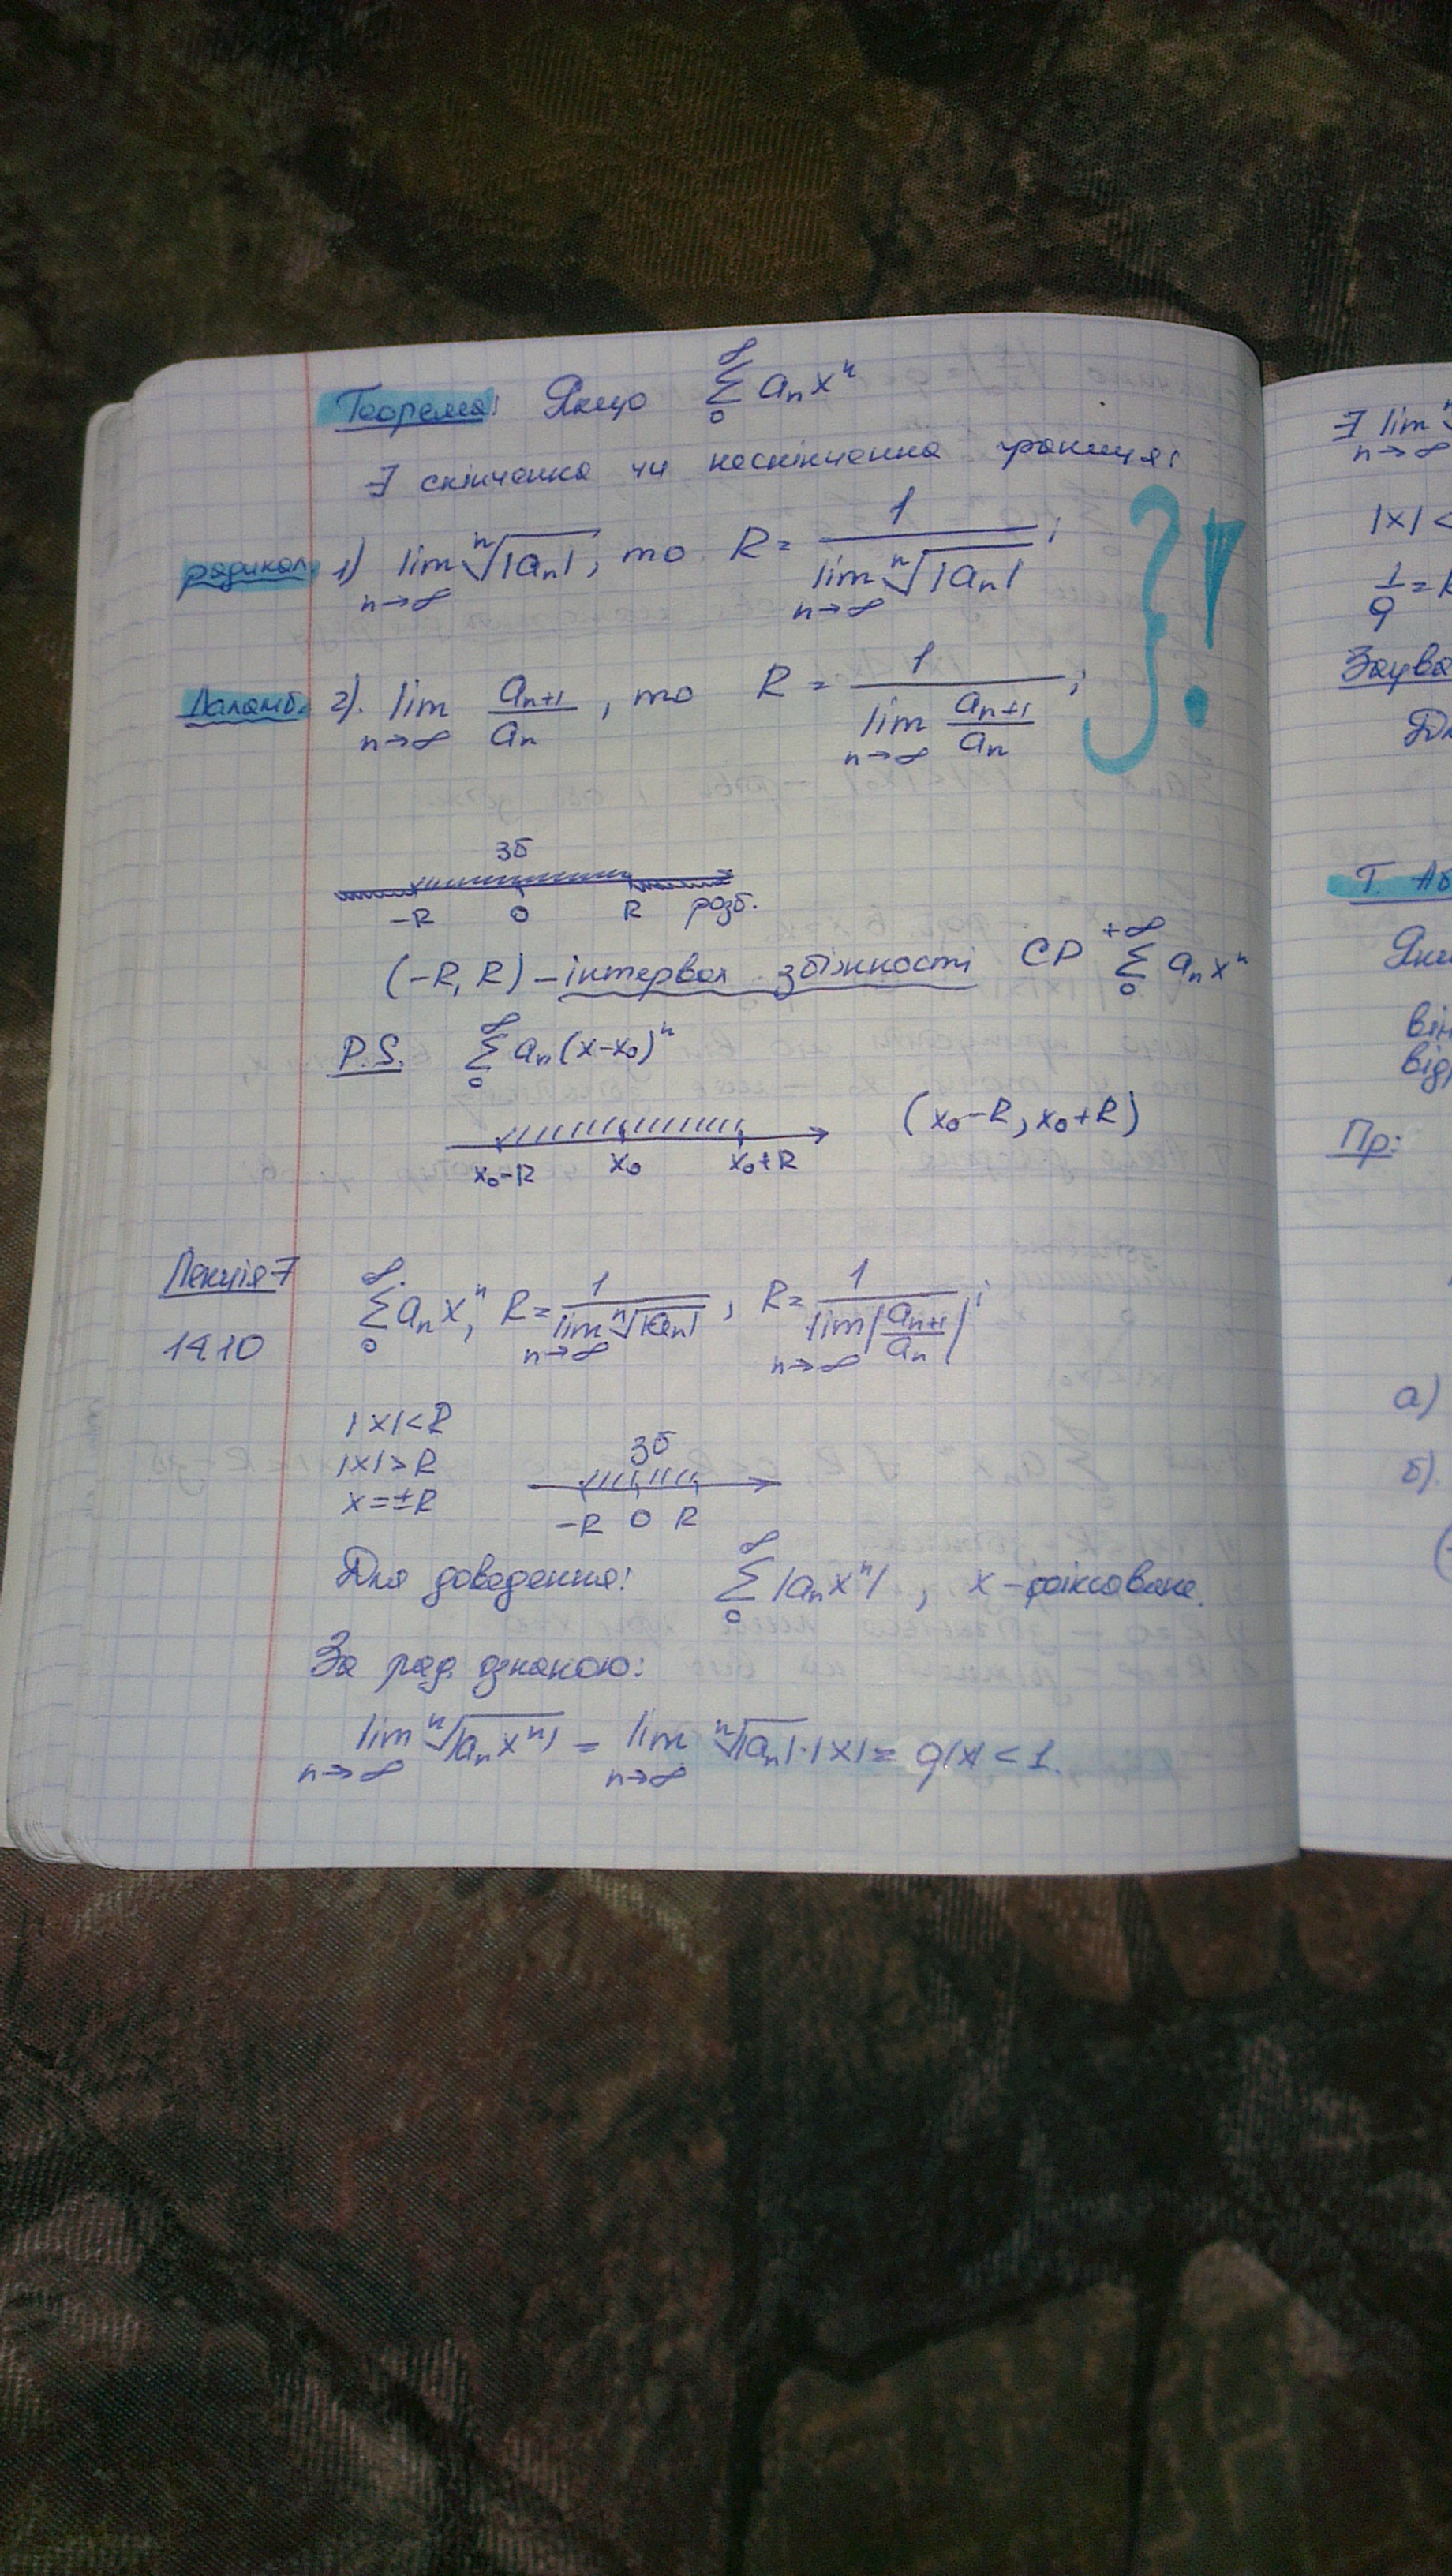 Теорема: Якщо ∞ ∑ 0 aₙxⁿ
∃ скінченна чи нескінченна границя:
радикал. 1) lim n→∞ ⁿ√|aₙ|, то R = 1 / lim n→∞ ⁿ√|aₙ| ;
Даламб. 2). lim n→∞ aₙ₊₁ / aₙ , то R = 1 / lim n→∞ aₙ₊₁ / aₙ ; !
зб
-R 0 R розб.
(-R, R) – інтервал збіжності СР +∞ ∑ 0 aₙxⁿ
P.S. ∞ ∑ 0 aₙ(x-x₀)ⁿ
(x₀-R, x₀+R)
x₀-R x₀ x₀+R
Лекція 7 ∞ ∑ 0 aₙxⁿ, R = 1 / lim n→∞ ⁿ√|aₙ| , R = 1 / lim n→∞ |aₙ₊₁ / aₙ| ;
14.10
|x|<R
|x|>R
x=±R
зб
-R 0 R
Для доведення: ∞ ∑ 0 |aₙxⁿ| , x – фіксоване.
За рад. ознакою:
lim n→∞ ⁿ√|aₙxⁿ| = lim n→∞ ⁿ√|aₙ|·|x| = q|x| < 1.
∃ lim n→∞ ⁿ
|x| <
1/q =
Т.
Пр:
а)
б).